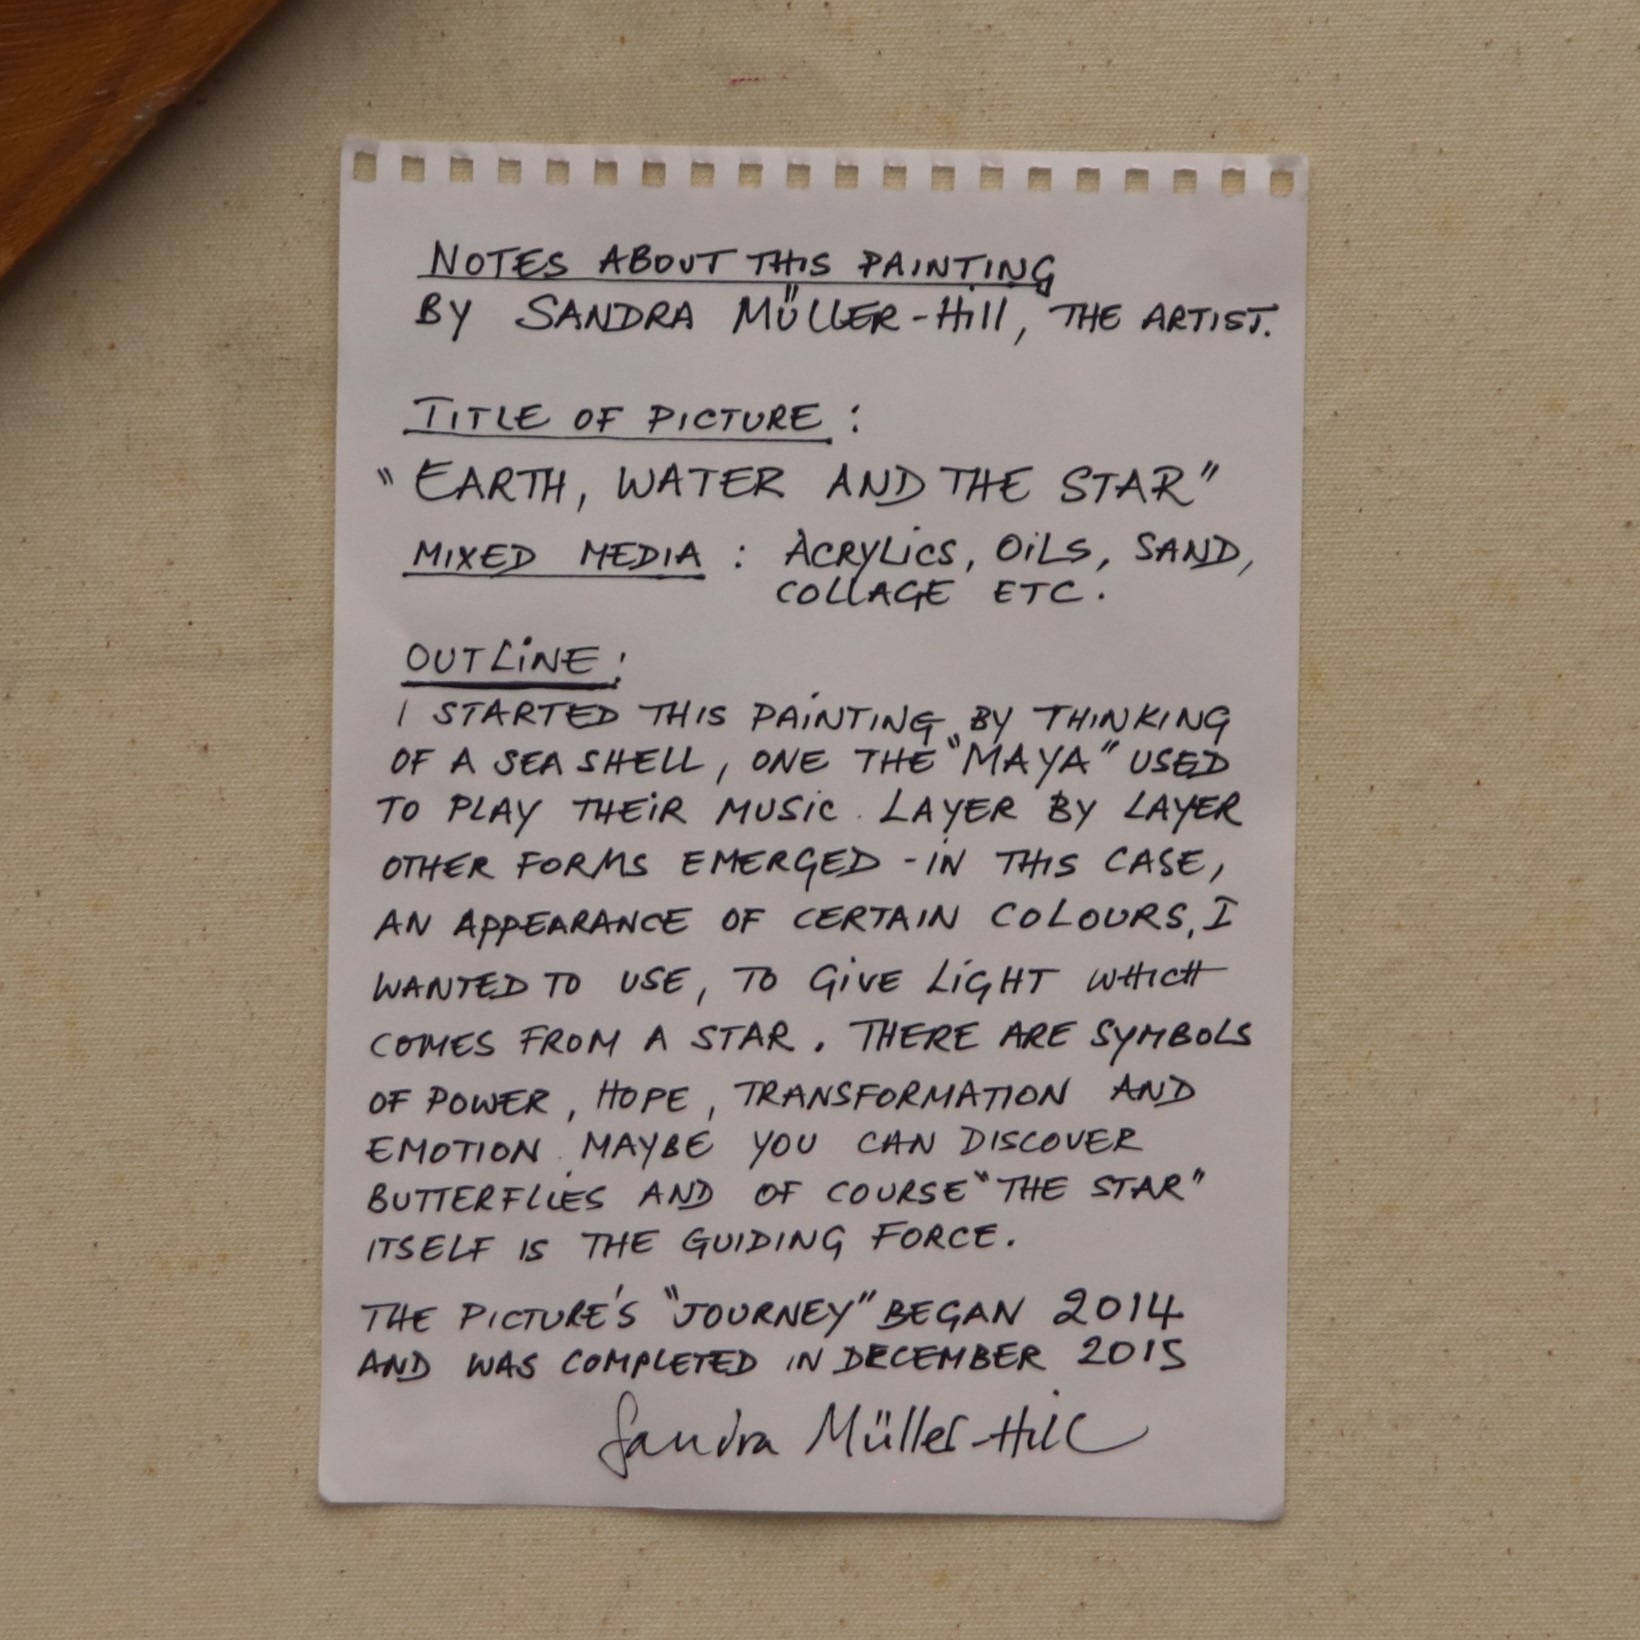 NOTES ABOUT THIS PAINTING
BY SANDRA MÜLLER-Hill, THE ARTIST.
TITLE OF PICTURE :
"EARTH, WATER AND THE STAR"
MIXED MEDIA : ACRYLiCS, OiLS, SAND,
COLLAGE ETC.
OUTLiNE:
I STARTED THIS PAiNTING BY THINKING
OF A SEA SHELL, ONE THE "MAYA" USED
TO PLAY THEiR MUSiC. LAYER BY LAYER
OTHER FORMS EMERGED - iN THIS CASE,
AN APPEARANCE OF CERTAIN COLOURS, I
WANTED TO USE, TO GiVE LiGHT WHICH
COMES FROM A STAR. THERE ARE SYMBOLS
OF POWER, HOPE, TRANSFORMATION AND
EMOTION. MAYBE YOU CAN DISCOVER
BUTTERFLiES AND OF COURSE "THE STAR"
ITSELF IS THE GUIDING FORCE.
THE PICTURE'S "JOURNEY" BEGAN 2014
AND WAS COMPLETED IN DECEMBER 2015
Sandra Müller-Hill